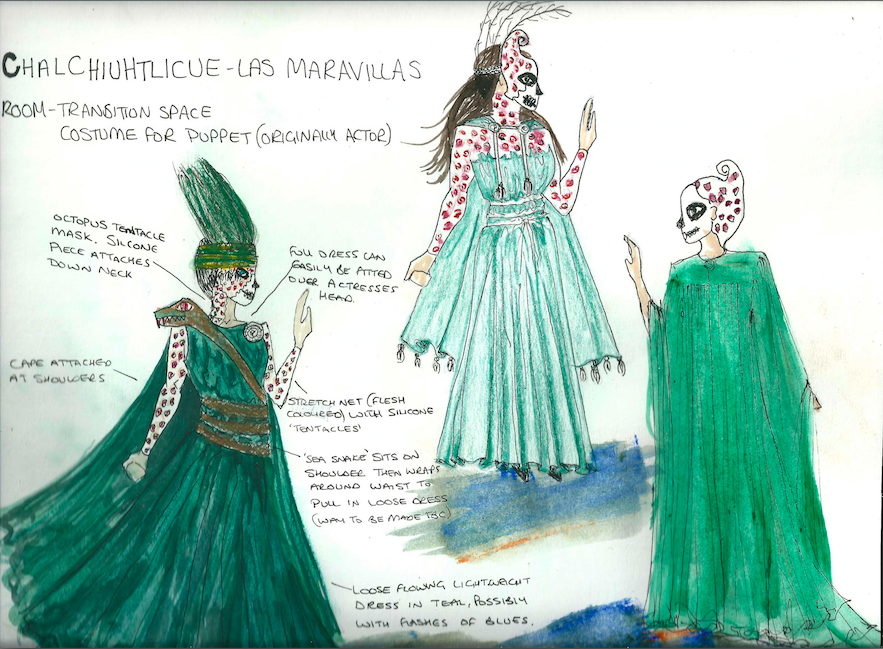 CHALCHIUHTLICUE-LAS MARAVILLAS
ROOM-TRANSITION SPACE
COSTUME FOR PUPPET (ORIGINALLY ACTOR)
OCTOPUS TENTACLE
MASK. SILICONE
PIECE ATTACHES
DOWN NECK
FULL DRESS CAN
EASILY BE FITTED
OVER ACTRESSES
HEAD.
CAPE ATTACHED
AT SHOULDERS
STRETCH NET (FLESH
COLOURED) WITH SILICONE
'TENTACLES'
'SEA SNAKE' SITS ON
SHOULDER THEN WRAPS
AROUND WAIST TO
PULL IN LOOSE DRESS
(WAY TO BE MADE TBC)
LOOSE FLOWING LIGHTWEIGHT
DRESS IN TEAL, POSSIBLY
WITH FLASHES OF BLUES.